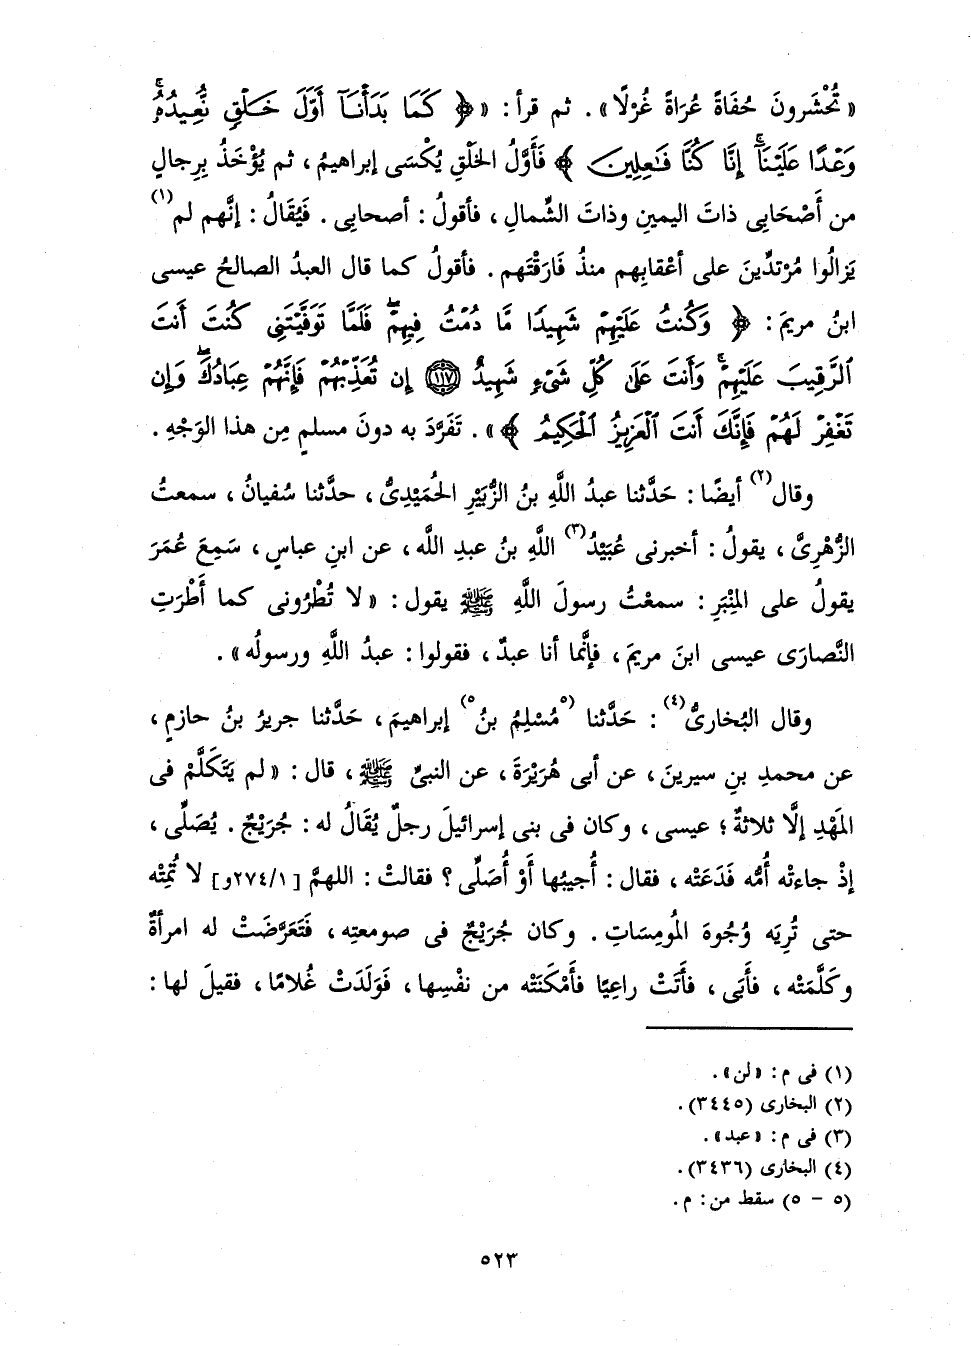 « تُحْشَرونَ حُفَاةً عُرَاةً غُرْلًا » . ثم قرأ : « ﴿ كَمَا بَدَأْنَآ أَوَّلَ خَلْقٍ نُّعِيدُهُۥ
وَعْدًا عَلَيْنَآ إِنَّا كُنَّا فَٰعِلِينَ ﴾ فَأَوَّلُ الخَلْقِ يُكْسَى إبراهيمُ ، ثم يُؤْخَذُ بِرِجالٍ
من أَصْحَابِى ذاتَ اليمينِ وذاتَ الشِّمالِ ، فأقولُ : أصحابى . فَيُقَالُ : إنَّهم لم(١)
يَزالُوا مُرْتدِّينَ على أعْقابِهم منذُ فَارَقْتَهم . فأقولُ كما قال العبدُ الصالحُ عيسى
ابنُ مريمَ : ﴿ وَكُنتُ عَلَيْهِمْ شَهِيدًا مَّا دُمْتُ فِيهِمْ ۖ فَلَمَّا تَوَفَّيْتَنِى كُنتَ أَنتَ
ٱلرَّقِيبَ عَلَيْهِمْ ۚ وَأَنتَ عَلَىٰ كُلِّ شَىْءٍ شَهِيدٌ ﴿١١٧﴾ إِن تُعَذِّبْهُمْ فَإِنَّهُمْ عِبَادُكَ ۖ وَإِن
تَغْفِرْ لَهُمْ فَإِنَّكَ أَنتَ ٱلْعَزِيزُ ٱلْحَكِيمُ ﴾ » . تَفَرَّدَ به دونَ مسلمٍ مِن هذا الوَجْهِ .
وقال(٢) أيضًا : حَدَّثنا عبدُ اللَّهِ بنُ الزُّبَيْرِ الحُمَيْدِىُّ ، حدَّثنا سُفيانُ ، سمعتُ
الزُّهْرِىَّ ، يقولُ : أخبرنى عُبَيْدُ(٣) اللَّهِ بنُ عبدِ اللَّه ، عن ابنِ عباسٍ ، سَمِعَ عُمَرَ
يقولُ على المِنْبَرِ : سمعْتُ رسولَ اللَّهِ ﷺ يقول : « لا تُطْرُونى كما أَطْرَتِ
النَّصارَى عيسى ابنَ مريمَ ، فإنَّما أنا عبدٌ ، فقولوا : عبدُ اللَّهِ ورسولُه » .
وقال البُخارىُّ(٤) : حَدَّثنا (٥مُسْلِمُ بنُ٥) إبراهيمَ ، حَدَّثنا جريرُ بنُ حازمٍ ،
عن محمدِ بنِ سيرينَ ، عن أبى هُرَيْرَةَ ، عن النبىِّ ﷺ ، قال : « لم يَتَكَلَّمْ فى
المَهْدِ إلَّا ثلاثةٌ ؛ عيسى ، وكان فى بنى إسرائيلَ رجلٌ يُقَالُ له : جُرَيْجٌ . يُصَلِّى ،
إذْ جاءتْه أُمُّه فَدَعَتْه ، فقال : أُجيبُها أَوْ أُصَلِّى ؟ فقالتْ : اللهمَّ [ ٢٧٤/١و] لا تُمِتْه
حتى تُرِيَه وُجُوهَ المُومِسَاتِ . وكان جُرَيْجٌ فى صومعتِه ، فَتَعَرَّضَتْ له امرأةٌ
وكَلَّمَتْه ، فأبَى ، فأَتَتْ راعِيًا فأَمْكَنَتْه من نفْسِها ، فَوَلَدَتْ غُلامًا ، فقيلَ لها :
(١) فى م : « لن » .
(٢) البخارى (٣٤٤٥) .
(٣) فى م : « عبد » .
(٤) البخارى (٣٤٣٦) .
(٥ - ٥) سقط من : م .
٥٢٣